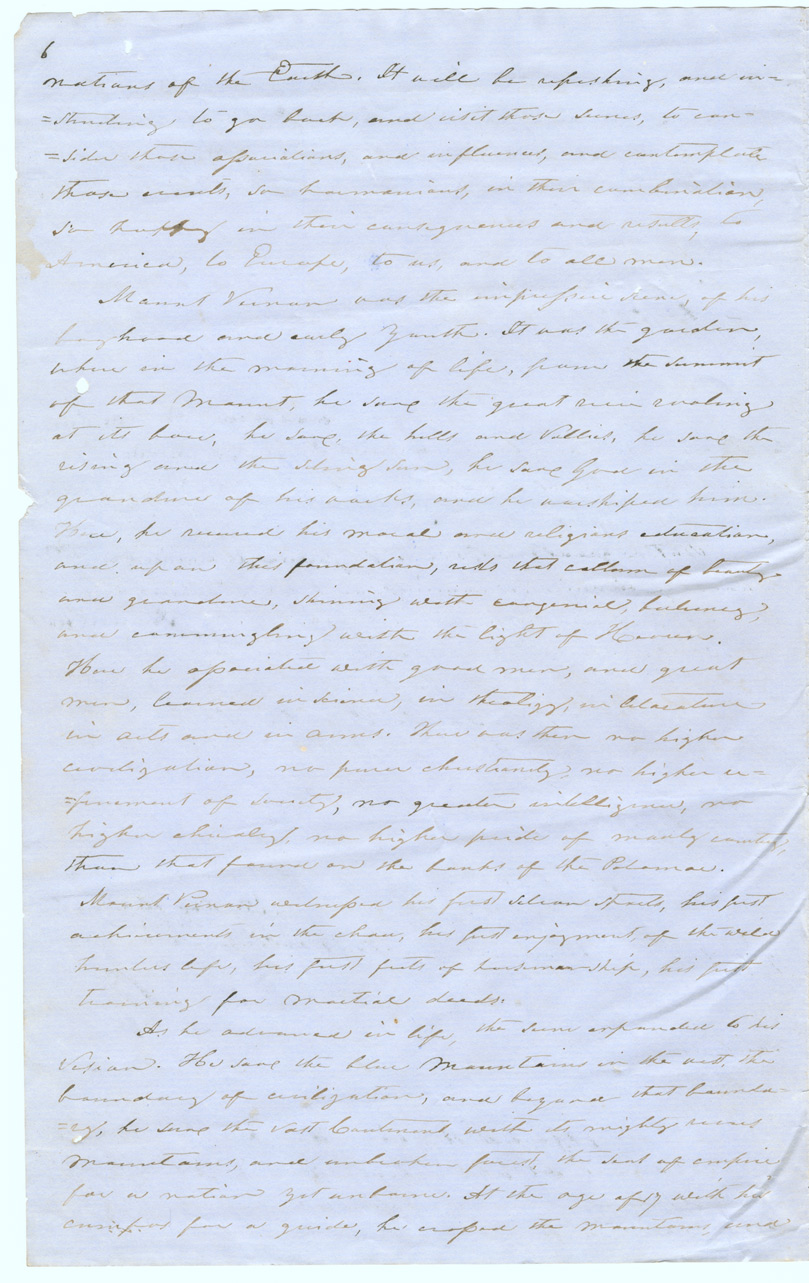 6
nations of the Earth. It will be refreshing, and in=
=structing to go back, and visit those scenes, to con=
=sider those associations, and influences, and contemplate
those events, so harmonious, in their combination,
so happy in their consequences and results, to
America, to Europe, to us, and to all men.
Mount Vernon was the impressive scene, of his
boyhood and early youth. It was the garden,
where in the morning of life, from the summit
of that Mount, he saw the great river rolling
at its base, he saw, the hills and Vallies, he saw the
rising and the seting sun, he saw God in the
grandeur of his works, and he worshiped him.
Here, he received his moral and religious education,
and upon this foundation, rests that collum of beauty
and grandeur, shining with congenial
and commingling with the light of Heaven.
Here he associated with good men, and great
men, learned in science, in theology, in literature
in arts and in arms. There was then no higher
civilization, no purer christianity, no higher re=
=finement of society, no greater intelligence, no
higher chivalry, no higher pride of manly
than that found on the banks of the Potomac.
Mount Vernon witnessed his first sports, his first
achievements in the chase, his first enjoyment, of the wild
hunters life, his first feets of horsemanship, his first
training for martial deeds.
As he advanced in life, the scene expanded to his
Vision. He saw the blue Mountains in the west, the
boundary of civilization, and beyond that bounda=
=ry, he saw the vast Continent with its mighty rivers
mountains, and unbroken forest, the seat of empire
for a nation yet unborne. At the age of 17 with his
compass for a guide, he crossed the mountains, and